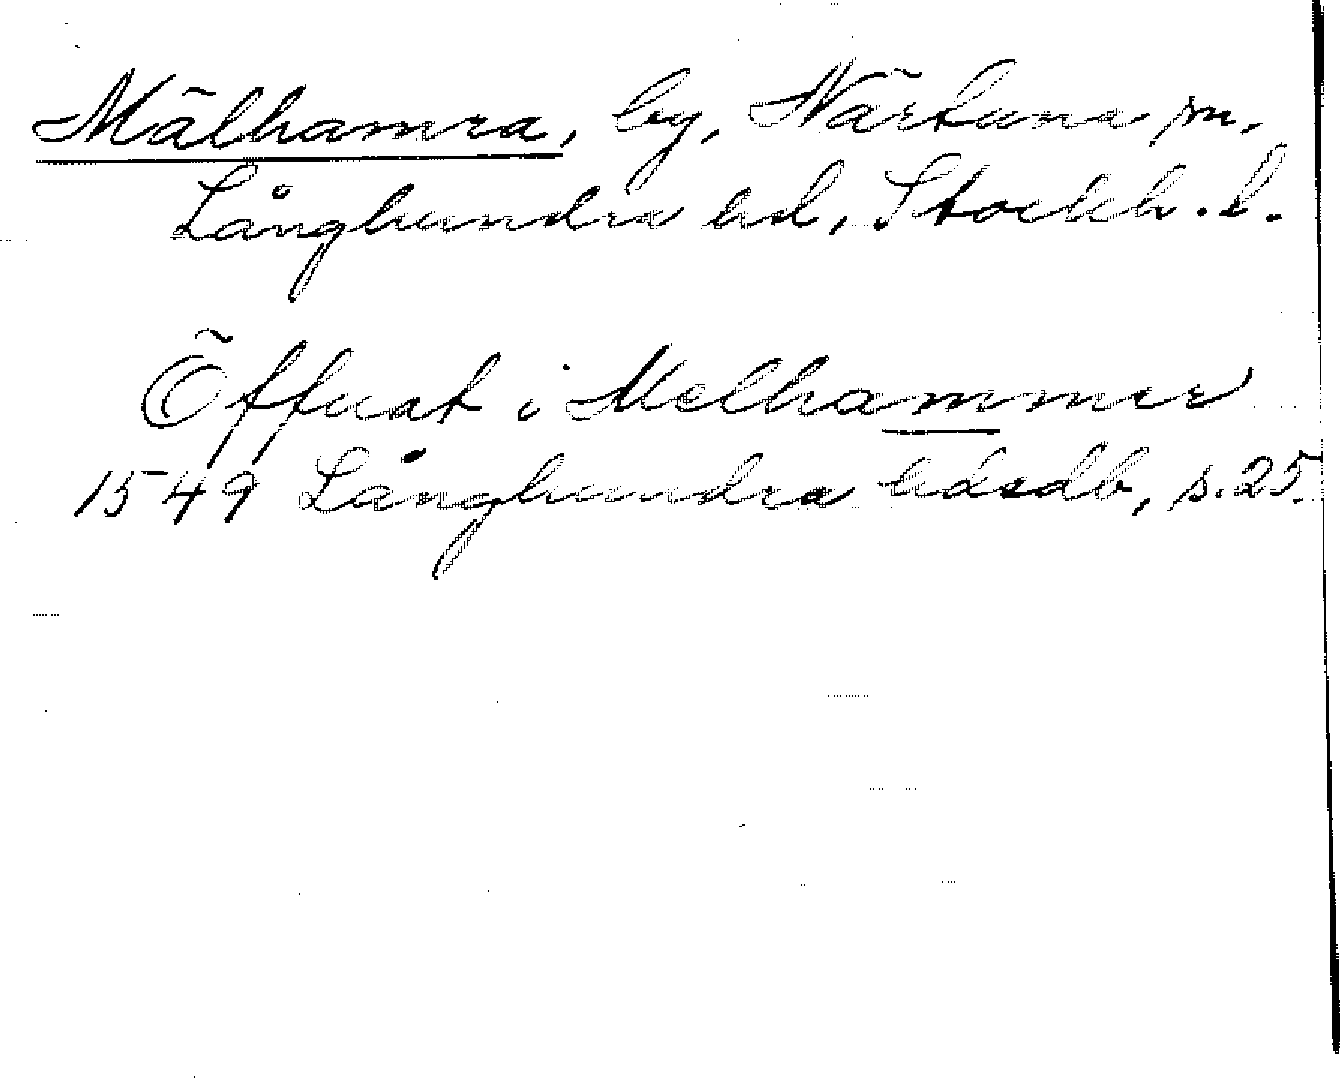 Mälhamra, by, Närtuna sn.
Långhundra hd, Stockh. l.
Öffuat i Melhammer
1549 Långhundra hdsdb, s. 25.